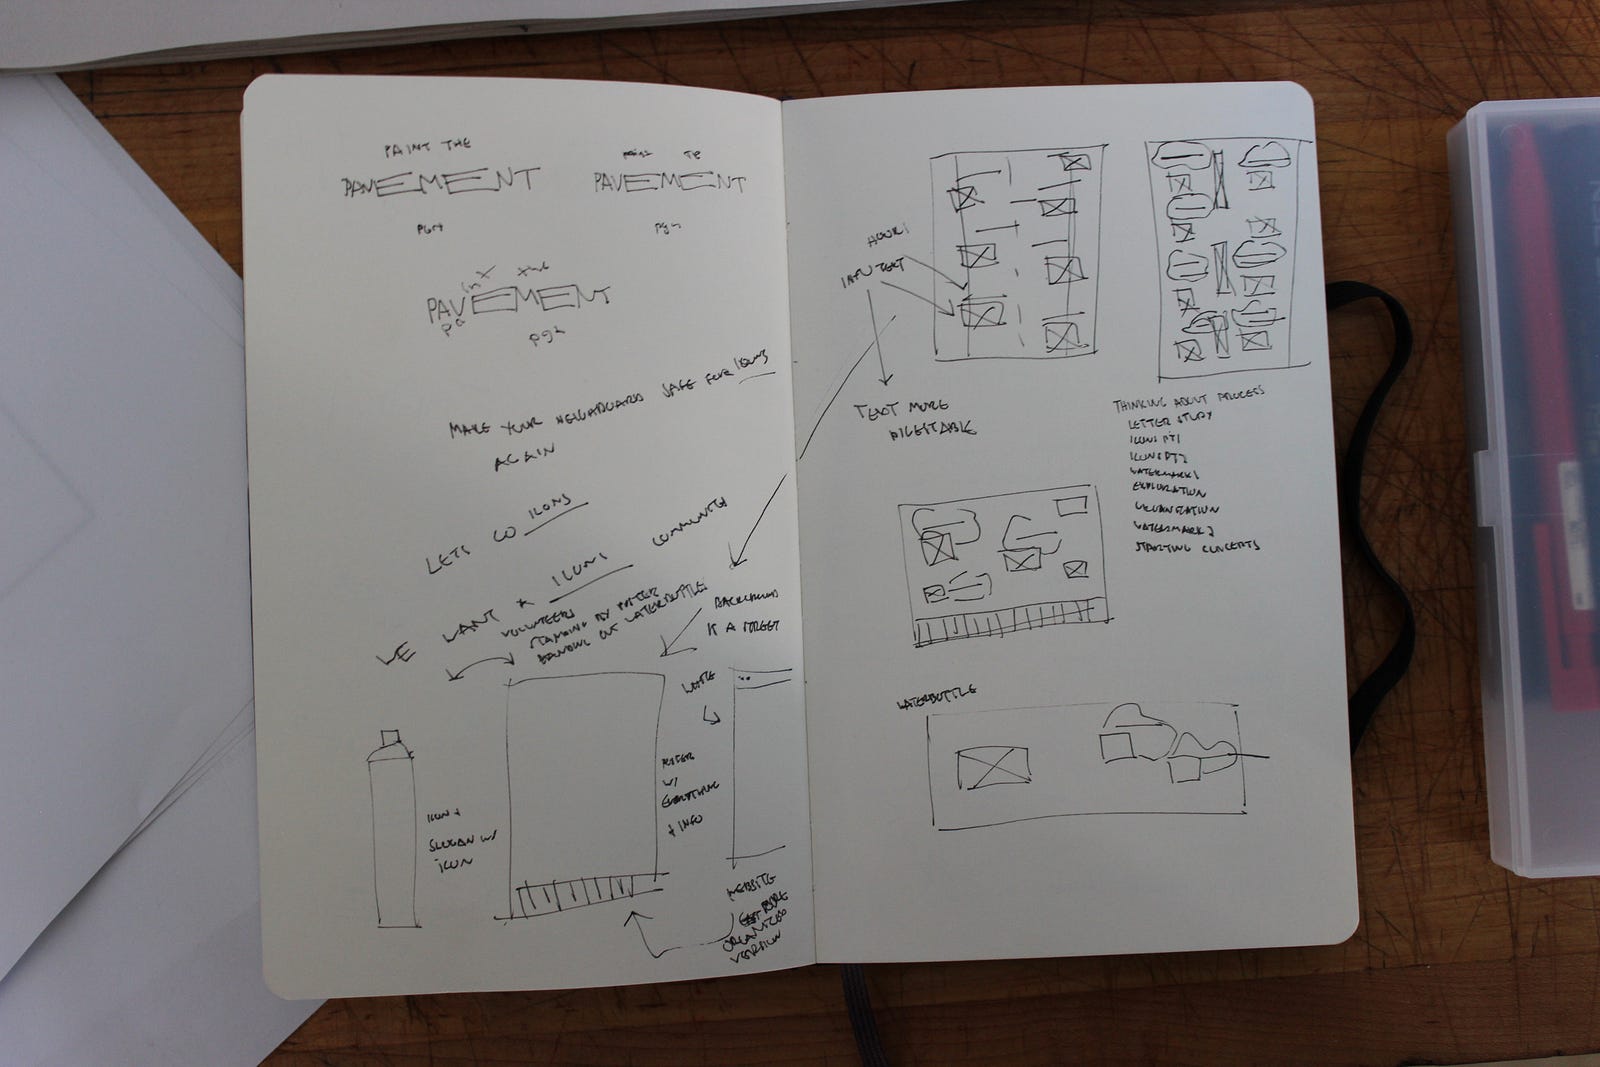 PAINT THE
PAVEMENT
PGH
PAVEMENT
pgh
the
PAVEMENT
pgh
MAKE YOUR NEIGHBORHOOD SAFE FOR ICONS
AGAIN
LETS GO ICONS
WE WANT ICONS COMMUNITY
VOLUNTEERS
STANDING BY POSTER
HANDING OUT WATERBOTTLES
BACKGROUND
IS A
ICON +
SLOGAN W/
ICON
POSTER
W/
EVERYTHING
+ INFO
WEBSITE
ORGANIZED
VERSION
INFO TEXT
TEXT MORE
DIGESTABLE
THINKING ABOUT PROCESS
LETTER STUDY
ICONS PT1
ICONS PT2
WATERMARK 1
EXPLORATION
ORGANIZATION
WATERMARK 2
STARTING CONCEPTS
WATERBOTTLE